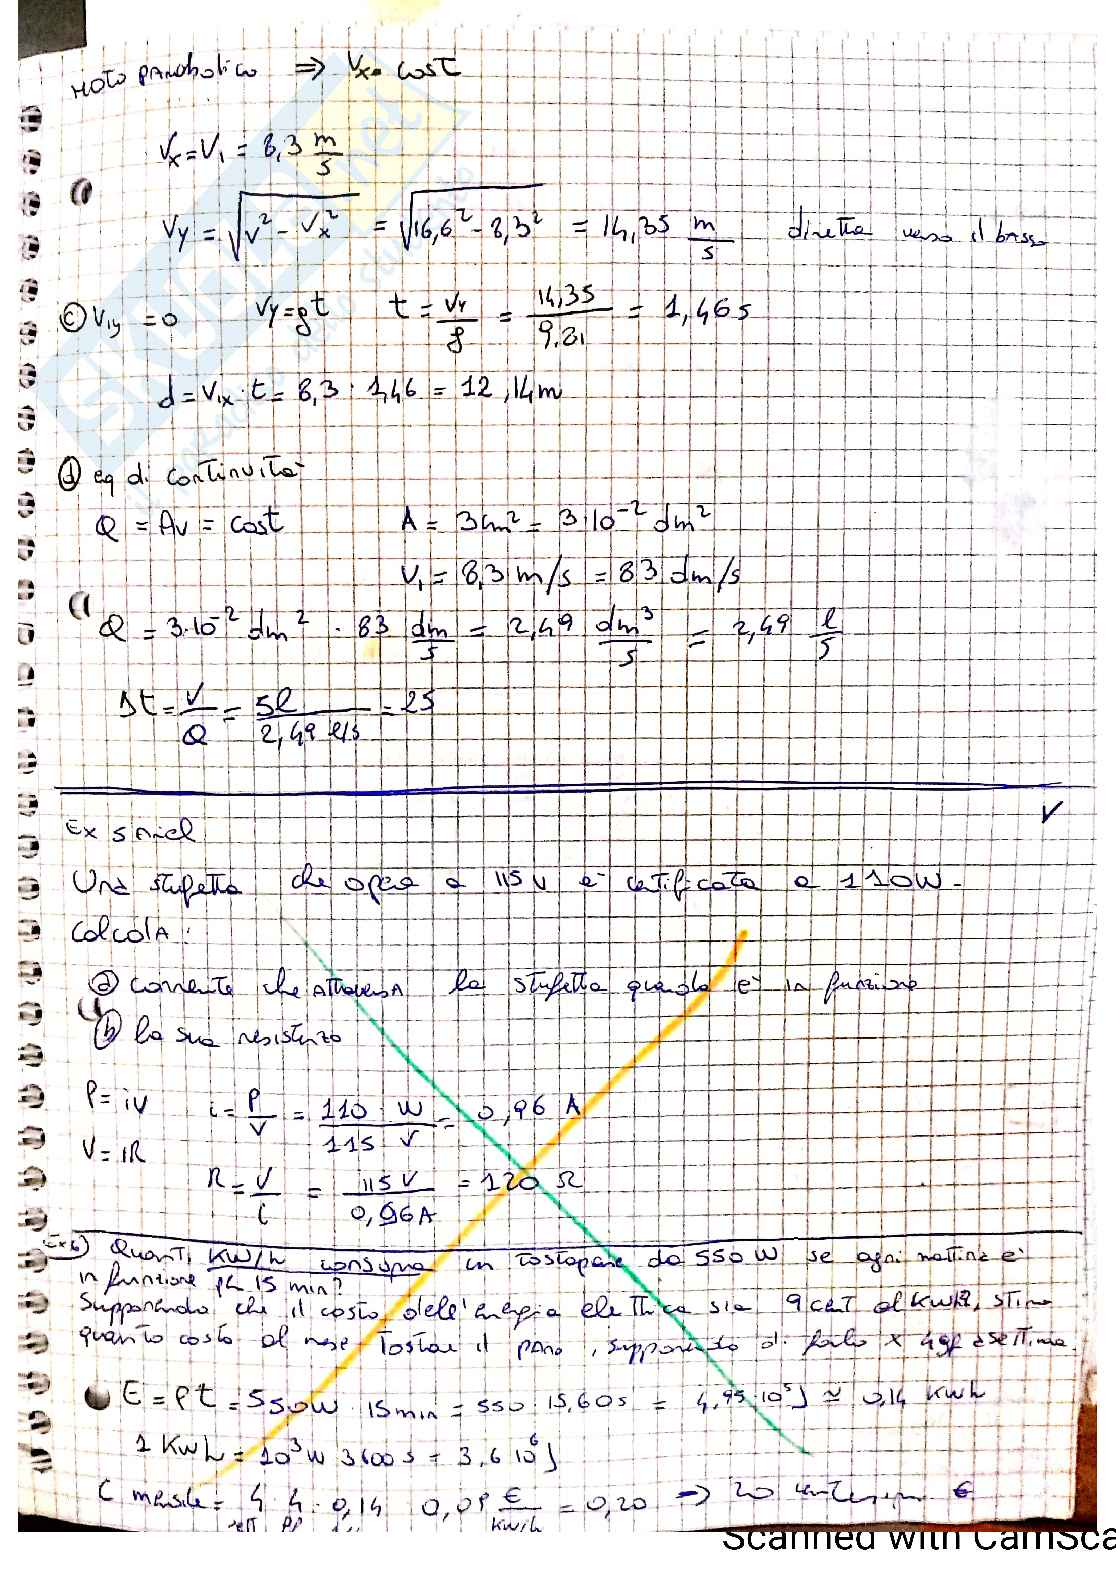 MOTO PARABOLICO ⇒ Vx = COST
Vx = V₁ = 8,3 m/s
Vy = √(V² - Vx²) = √(16,6² - 8,3²) = 14,35 m/s diretta verso il basso
ⓒ V₁y = 0 Vy = gt t = Vy/g = 14,35/9,81 = 1,46 s
d = V₁x · t = 8,3 · 1,46 = 12,14 m
ⓓ eq di continuità
Q = Av = cost A = 3 cm² = 3·10⁻² dm²
V₁ = 8,3 m/s = 83 dm/s
Q = 3·10⁻² dm² · 83 dm/s = 2,49 dm³/s = 2,49 l/s
Δt = V/Q = 5l/2,49 l/s = 2s
Ex
Una stufetta che opera a 115 V è certificata a 110W.
CALCOLA:
ⓐ corrente che ATTRAVERSA la stufetta quando è in funzione
ⓑ la sua resistenza
P = iV i = P/V = 110 W/115 V = 0,96 A
V = iR
R = V/i = 115 V/0,96A = 120 Ω
Ex 6) Quanti KW/h consuma un tostapane da 550 W se ogni mattina è
in funzione per 15 min?
Supponendo che il costo dell'energia elettrica sia 9 cent al KWh, stima
quanto costa al mese tostare il pane, supponendo di farlo x 4gg a settimana.
E = Pt = 550W · 15min = 550 · 15,60s = 4,95·10⁵J ≃ 0,14 KWh
1 KWh = 10³ W 3600 s = 3,6 10⁶ J
C mensile = 4 · 4 · 0,14 0,09 €/KW/h = 0,20 → 20 centesimi €
sett gg
Scanned with CamSca